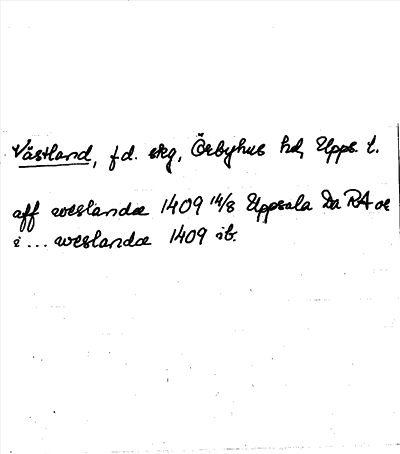 Västland, fd. skg, Örbyhus hd, Upps. l.
aff weslanda 1409 14/8 Uppsala Da RA oe
i ... weslanda 1409 ib.